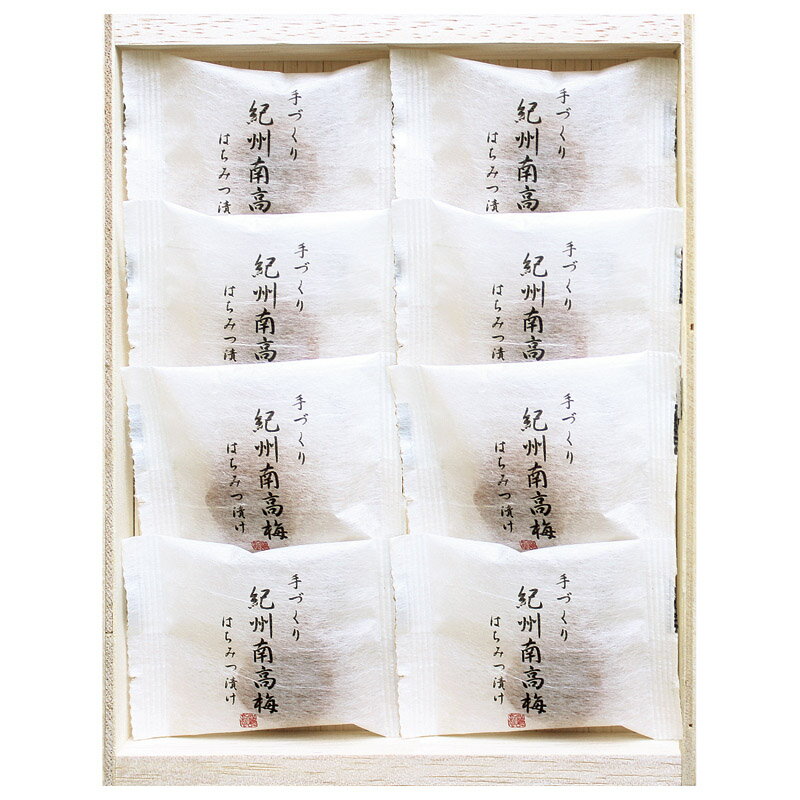 手づくり
紀州南高
はちみつ漬
手づくり
紀州南高
はちみつ漬
手づくり
紀州南高
はちみつ漬け
手づくり
紀州南高
はちみつ漬け
手づくり
紀州南高梅
はちみつ漬け
手づくり
紀州南高梅
はちみつ漬け
手づくり
紀州南高梅
はちみつ漬け
手づくり
紀州南高梅
はちみつ漬け